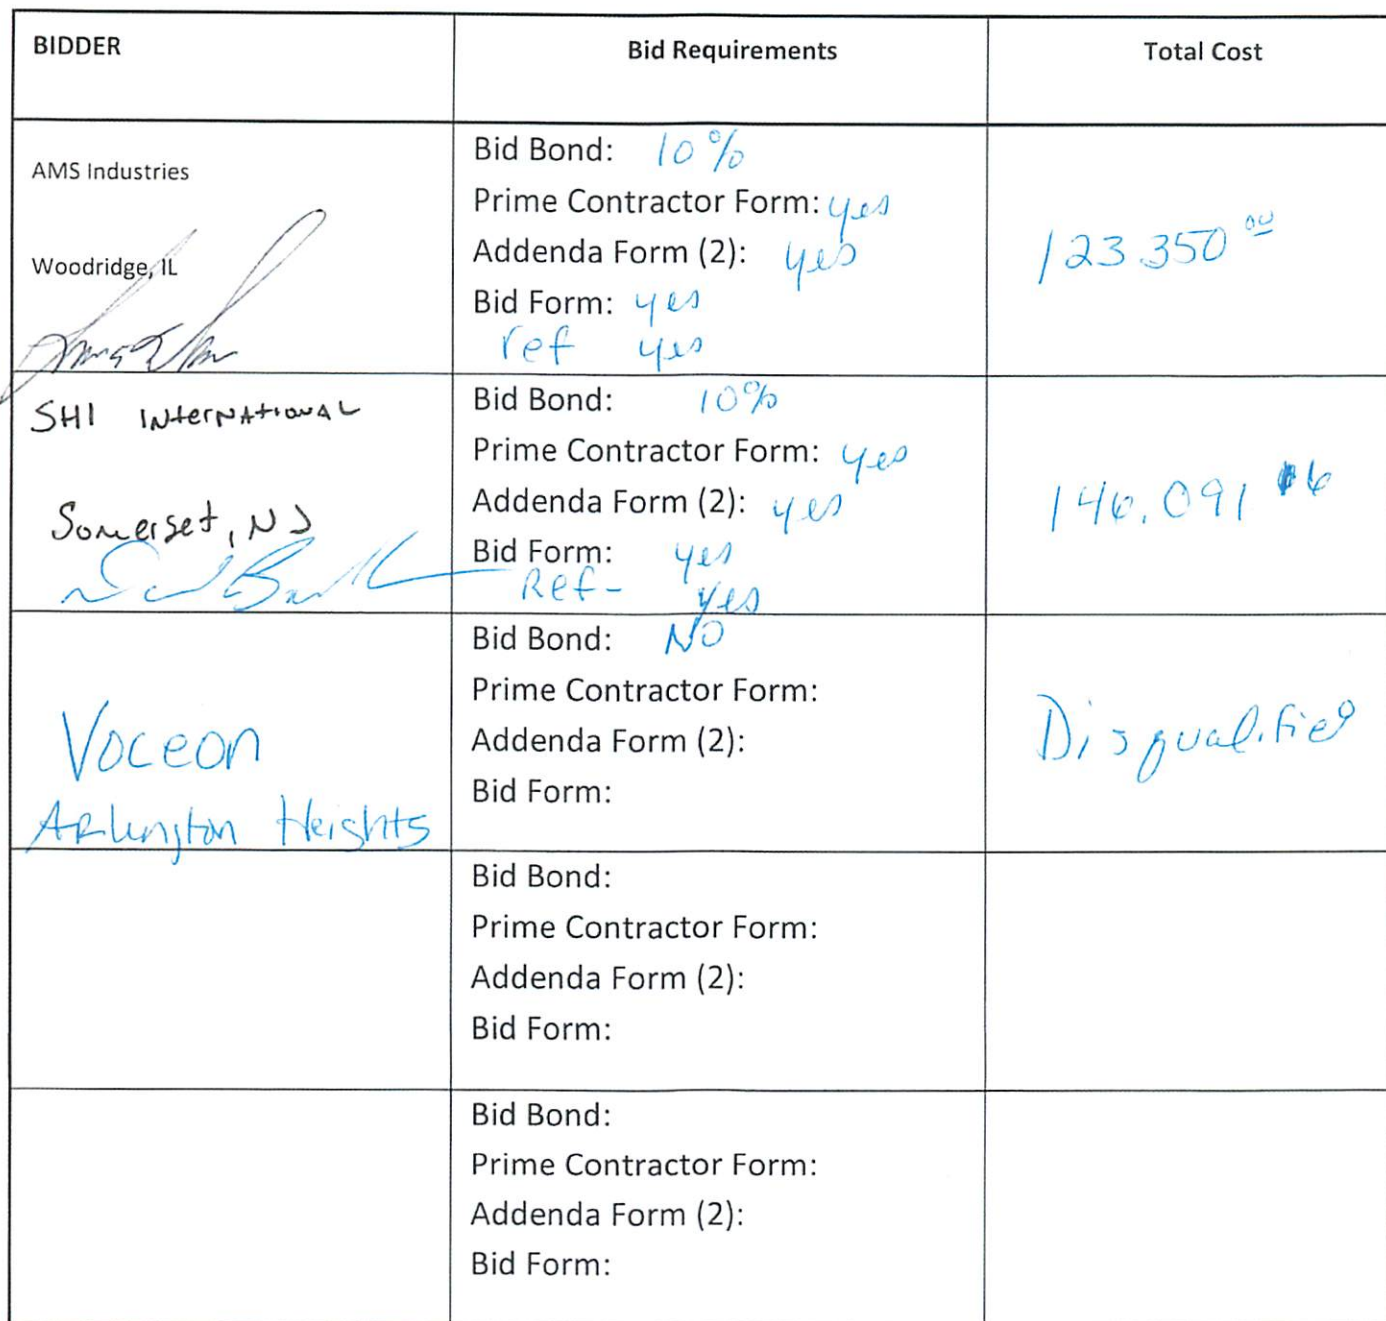 BIDDER
Bid Requirements
Total Cost
AMS Industries
Woodridge, IL
Bid Bond: 10%
Prime Contractor Form: yes
Addenda Form (2): yes
Bid Form: yes
ref yes
123 350 00
SHI INterNAtiONAL
Somerset, NJ
Bid Bond: 10%
Prime Contractor Form: yes
Addenda Form (2): yes
Bid Form: yes
Ref- yes
146,091
Voceon
Arlington Heights
Bid Bond: NO
Prime Contractor Form:
Addenda Form (2):
Bid Form:
Disqualified
Bid Bond:
Prime Contractor Form:
Addenda Form (2):
Bid Form:
Bid Bond:
Prime Contractor Form:
Addenda Form (2):
Bid Form: